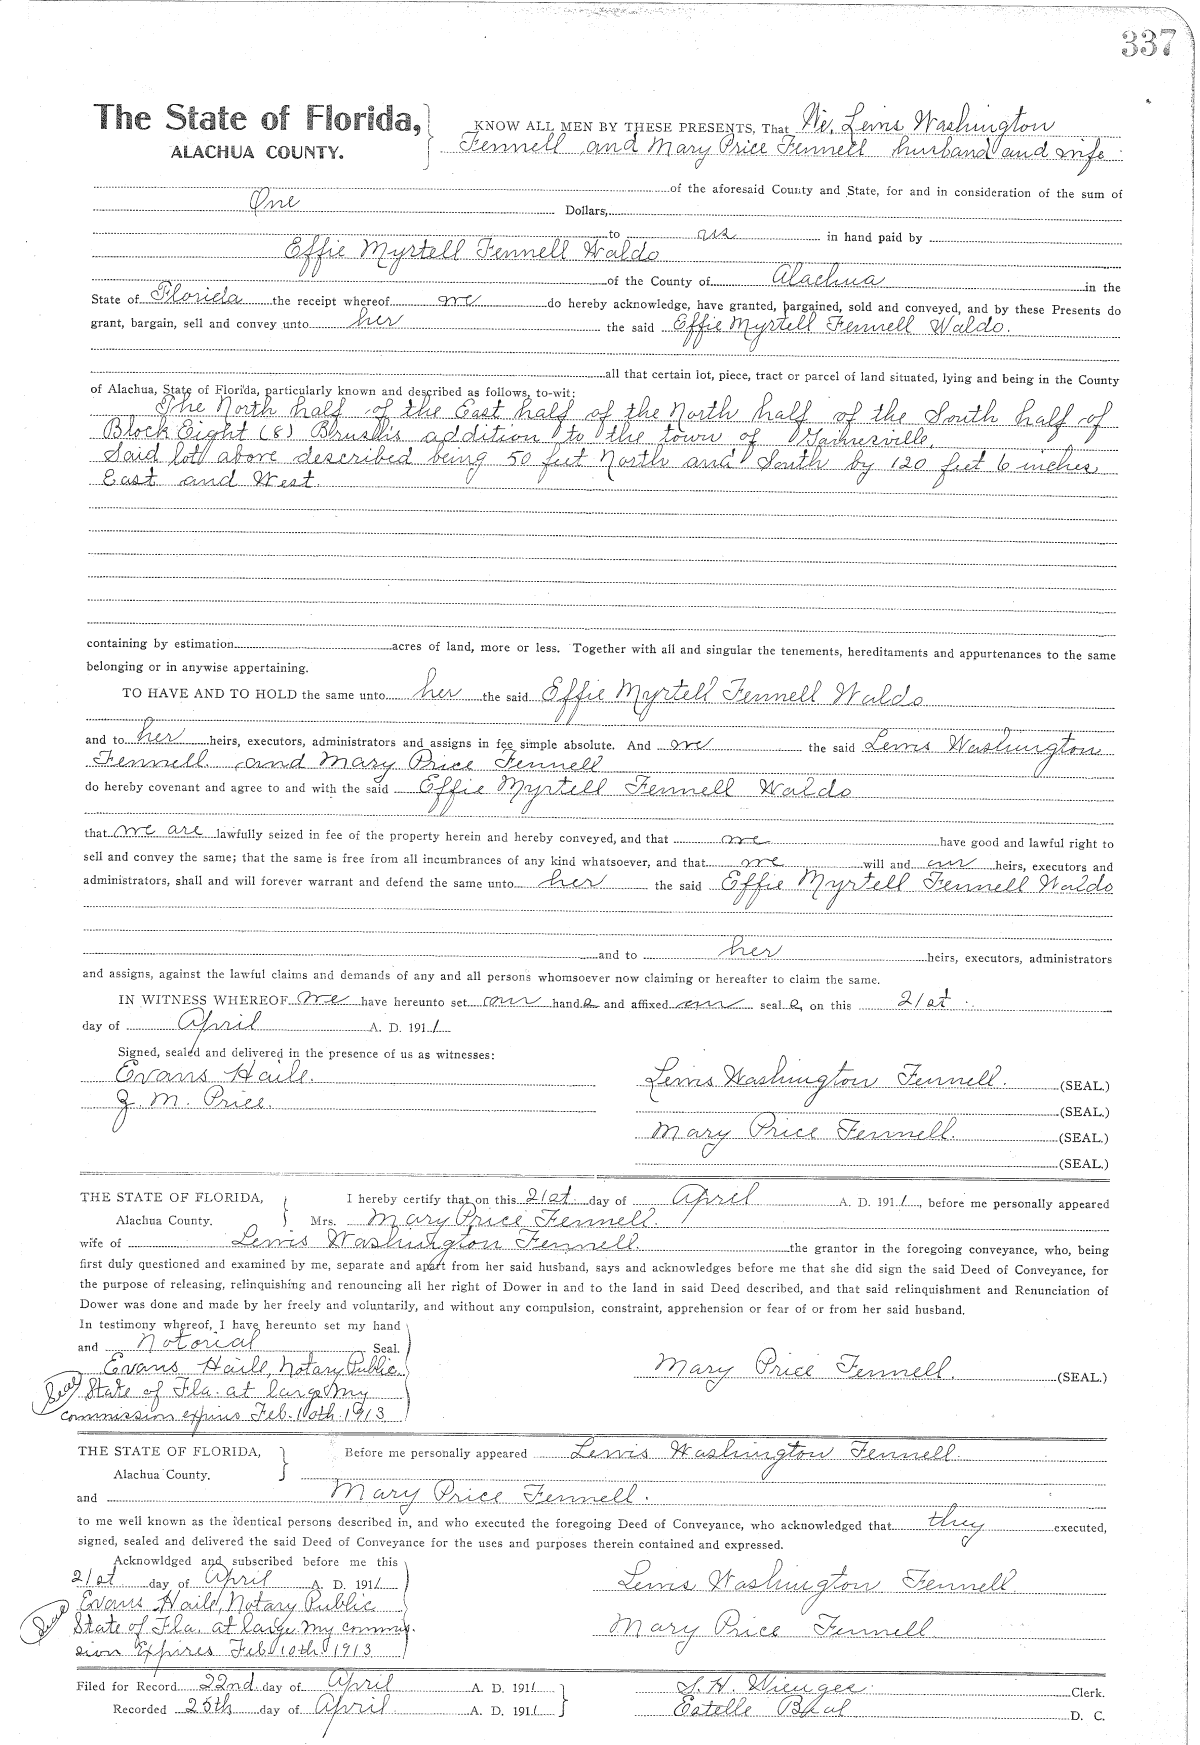 337
The State of Florida,
ALACHUA COUNTY.
KNOW ALL MEN BY THESE PRESENTS, That We, Lewis Washington
Fennell and Mary Price Fennell husband and wife
of the aforesaid County and State, for and in consideration of the sum of
One Dollars,
to us in hand paid by
Effie Myrtell Fennell Waldo
of the County of Alachua in the
State of Florida the receipt whereof we do hereby acknowledge, have granted, bargained, sold and conveyed, and by these Presents do
grant, bargain, sell and convey unto her the said Effie Myrtell Fennell Waldo.
all that certain lot, piece, tract or parcel of land situated, lying and being in the County
of Alachua, State of Florida, particularly known and described as follows, to-wit:
The North half of the East half of the North half of the South half of
Block Eight (8) Brush's addition to the town of Gainesville.
Said lot above described being 50 feet North and South by 120 feet 6 inches
East and West.
containing by estimation acres of land, more or less. Together with all and singular the tenements, hereditaments and appurtenances to the same
belonging or in anywise appertaining.
TO HAVE AND TO HOLD the same unto her the said Effie Myrtell Fennell Waldo
and to her heirs, executors, administrators and assigns in fee simple absolute. And we the said Lewis Washington
Fennell and Mary Price Fennell
do hereby covenant and agree to and with the said Effie Myrtell Fennell Waldo
that we are lawfully seized in fee of the property herein and hereby conveyed, and that we have good and lawful right to
sell and convey the same; that the same is free from all incumbrances of any kind whatsoever, and that we will and our heirs, executors and
administrators, shall and will forever warrant and defend the same unto her the said Effie Myrtell Fennell Waldo
and to her heirs, executors, administrators
and assigns, against the lawful claims and demands of any and all persons whomsoever now claiming or hereafter to claim the same.
IN WITNESS WHEREOF we have hereunto set our hands and affixed our seals, on this 21st
day of April A. D. 1911
Signed, sealed and delivered in the presence of us as witnesses:
Evans Haile. Lewis Washington Fennell. (SEAL.)
J. M. Price. (SEAL.)
Mary Price Fennell. (SEAL.)
(SEAL.)
THE STATE OF FLORIDA,
Alachua County.
I hereby certify that on this 21st day of April A. D. 1911, before me personally appeared
Mrs. Mary Price Fennell.
wife of Lewis Washington Fennell. the grantor in the foregoing conveyance, who, being
first duly questioned and examined by me, separate and apart from her said husband, says and acknowledges before me that she did sign the said Deed of Conveyance, for
the purpose of releasing, relinquishing and renouncing all her right of Dower in and to the land in said Deed described, and that said relinquishment and Renunciation of
Dower was done and made by her freely and voluntarily, and without any compulsion, constraint, apprehension or fear of or from her said husband.
In testimony whereof, I have hereunto set my hand
and Notorial Seal.
Evans Haile, Notary Public Mary Price Fennell. (SEAL.)
Seal State of Fla. at large my
commission expires Feb. 10th 1913
THE STATE OF FLORIDA,
Alachua County.
Before me personally appeared Lewis Washington Fennell
and Mary Price Fennell.
to me well known as the identical persons described in, and who executed the foregoing Deed of Conveyance, who acknowledged that they executed,
signed, sealed and delivered the said Deed of Conveyance for the uses and purposes therein contained and expressed.
Acknowldged and subscribed before me this
21st day of April A. D. 1911 Lewis Washington Fennell
Evans Haile, Notary Public
Seal State of Fla. at large my commis- Mary Price Fennell
sion Expires Feb 10th 1913
Filed for Record 22nd day of April A. D. 1911 S. H. Wienges Clerk.
Recorded 25th day of April A. D. 1911 Estelle D. C.